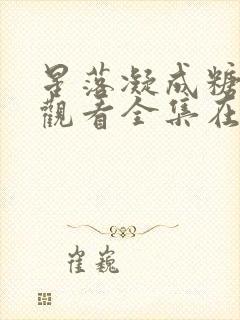 星落凝成糖
觀看全集在
崔巍